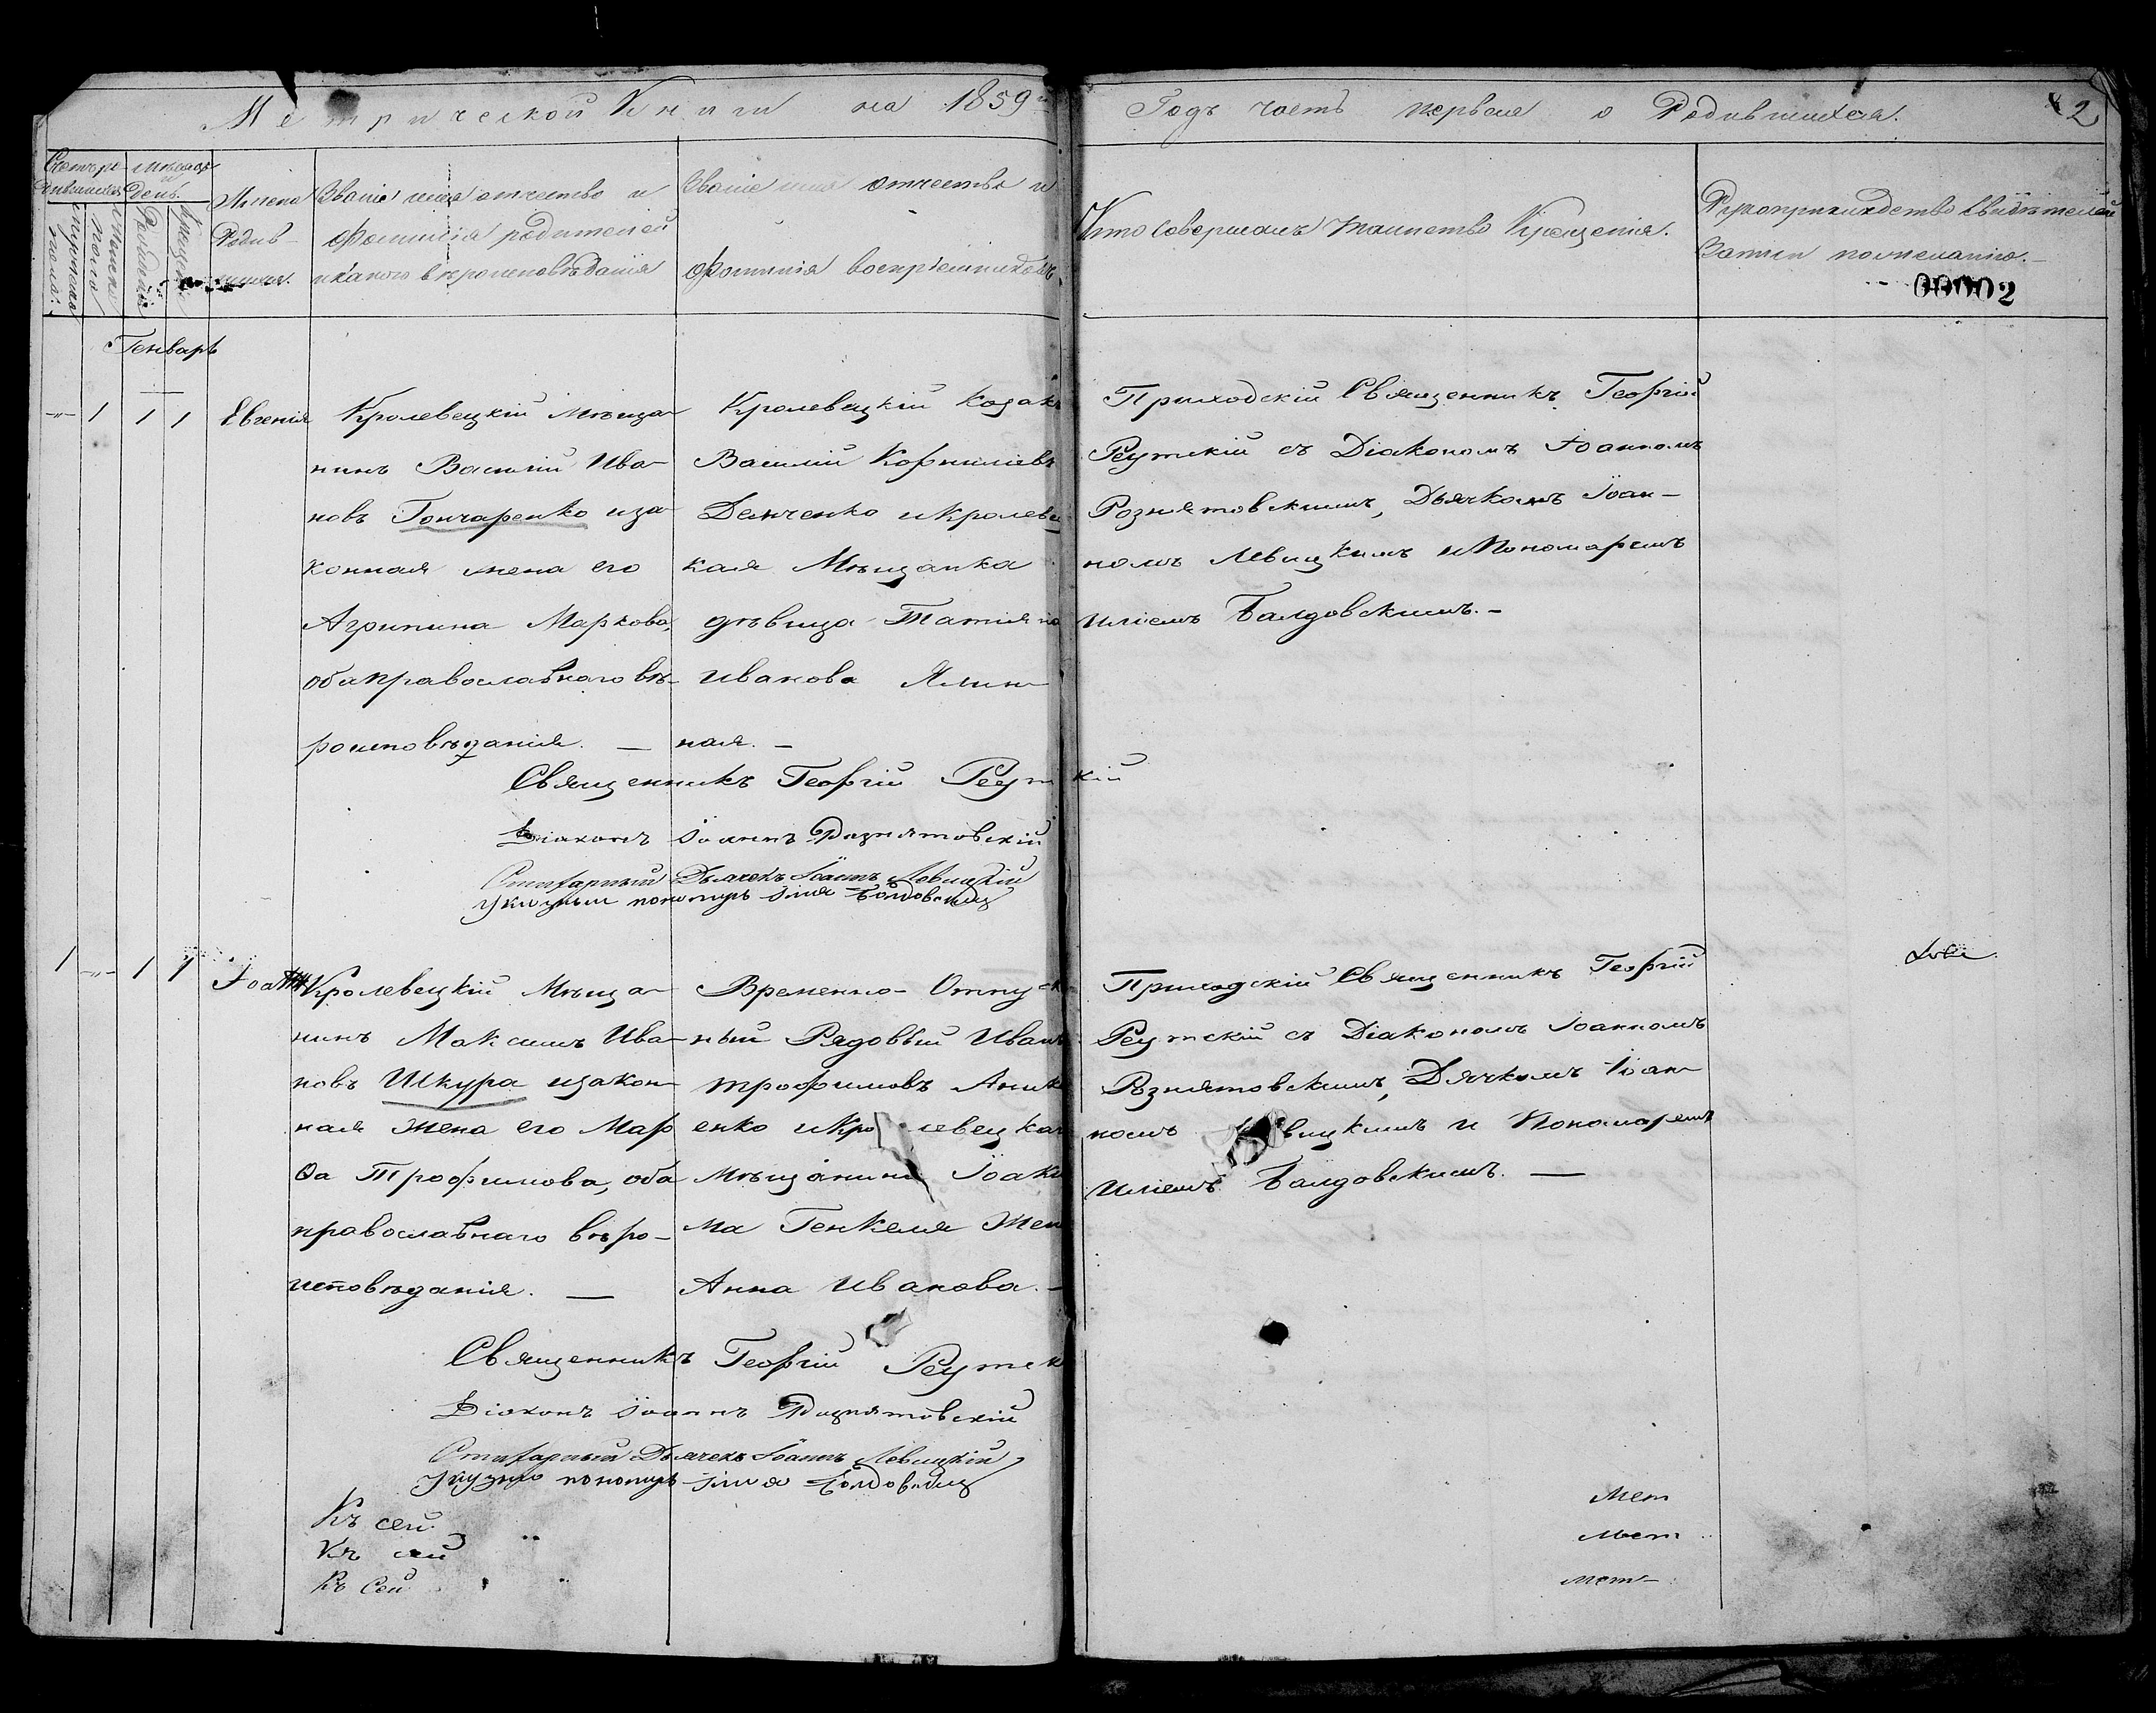 Метрической Книги на 1859й
Годъ часть первая о Родившихся.
2
Счетъ ро-
дившихся
мужеска
пола.
женска
пола
мѣсяцъ
и
день.
Рожденія
Крещенія
Имена
Родив-
шихся.
Званіе имя отчество и
фамилія родителей
и какого вѣроисповѣданія
Званіе имя отчество и
фамилія воспріемниковъ
Кто совершалъ таинство Крещенія.
Рукоприкладство свидѣтелей
записи по желанію.
00002
Генварь
-"- 1 1 1
Евгенія
Кролевецкій мѣща-
нинъ Василій Ива-
новъ Гончаренко и за-
конная жена его
Агрипина Маркова,
оба православнаго вѣ-
роисповѣданія. —
Кролевецкій Козакъ
Василій Корнилievъ
Демченко и Кролевец
кая Мѣщанка
дѣвица Татіяна
Иванова
ная. —
Приходскій Священникъ Георгій
Реутскій съ Діакономъ Іоанномъ
Рознятовскимъ, Дьячкомъ Іоан-
номъ Левицкимъ и Пономаремъ
Иліемъ Балдовскимъ. —
Священникъ Георгій Реутскій
Діаконъ Іоаннъ Рознятовскій
Стихарный Дьячекъ Іоаннъ Левицкій
Указный пономарь Илія Болдовскій
1 -"- 1 1
Іоаннъ
Кролевецкій Мѣща-
нинъ Максимъ Ива-
новъ Шкура и закон-
ная жена его Мар
ѳа Трофимова, оба
православнаго вѣро-
исповѣданія. —
Временно-Отпуск
ный Рядовый Иванъ
Трофимовъ Аник
енко и Кролевецкаго
мѣщанина Іоаки
ма Генкеля Жена
Анна Иванова. —
Приходскій Священникъ Георгій
Реутскій съ Діакономъ Іоанномъ
Рознятовскимъ, Дьячкомъ Іоан-
номъ Левицкимъ и Пономаремъ
Иліемъ Балдовскимъ. —
Священникъ Георгій Реутск
Діаконъ Іоаннъ Рознятовскій
Стихарный Дьячекъ Іоаннъ Левицкій
Указный пономарь Илія Болдовскій
Къ сей
Къ сей
Къ сей
Мет
Мет
мет-